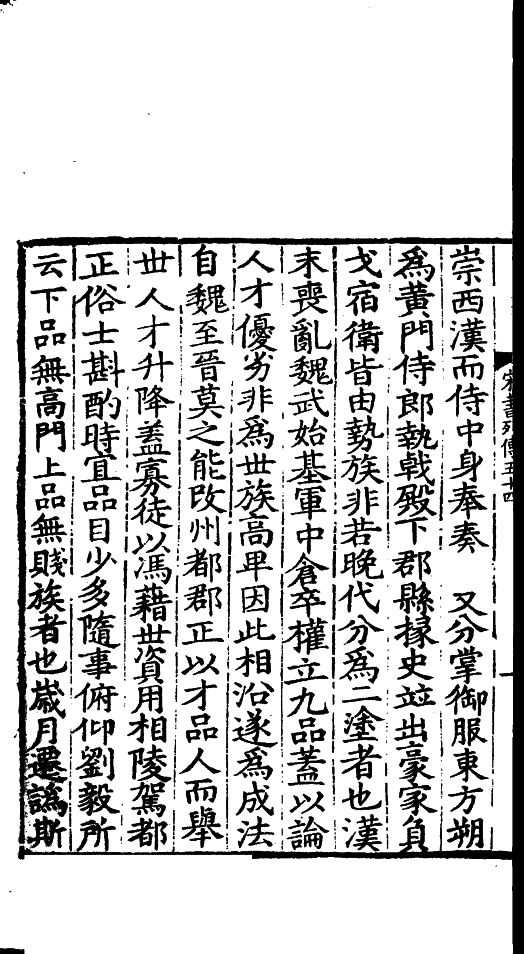 崇西漢而侍中身奉奏　又分掌御服東方朔
為黃門侍郎執戟殿下郡縣掾史竝出豪家負
戈宿衛皆由勢族非若晚代分為二塗者也漢
末喪亂魏武始基軍中倉卒權立九品蓋以論
人才優劣非為世族高卑因此相沿遂為成法
自魏至晉莫之能改州都郡正以才品人而舉
丗人才升降蓋寡徒以馮藉丗資用相陵駕都
正俗士斟酌時宜品目少多隨事俯仰劉毅所
云下品無高門上品無賤族者也歲月遷譌斯
宋書列傳五十四